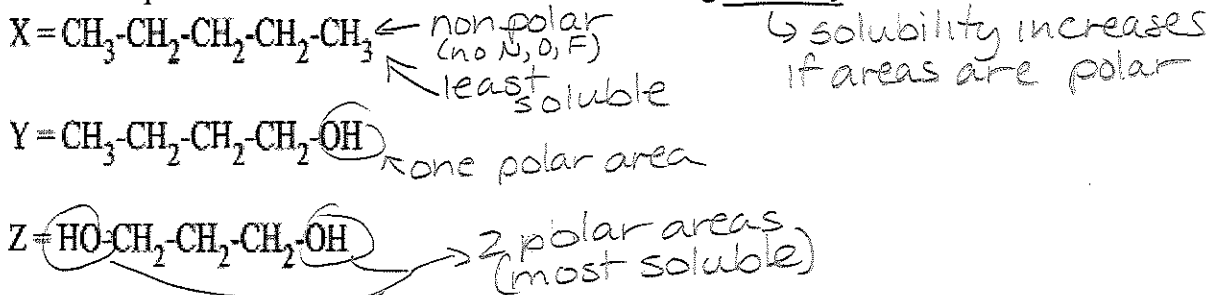 X = CH₃-CH₂-CH₂-CH₂-CH₃ ← nonpolar
(no N, O, F)
least soluble
↳ solubility increases
if areas are polar
Y = CH₃-CH₂-CH₂-CH₂-OH
one polar area
Z = HO-CH₂-CH₂-CH₂-OH
2 polar areas
(most soluble)